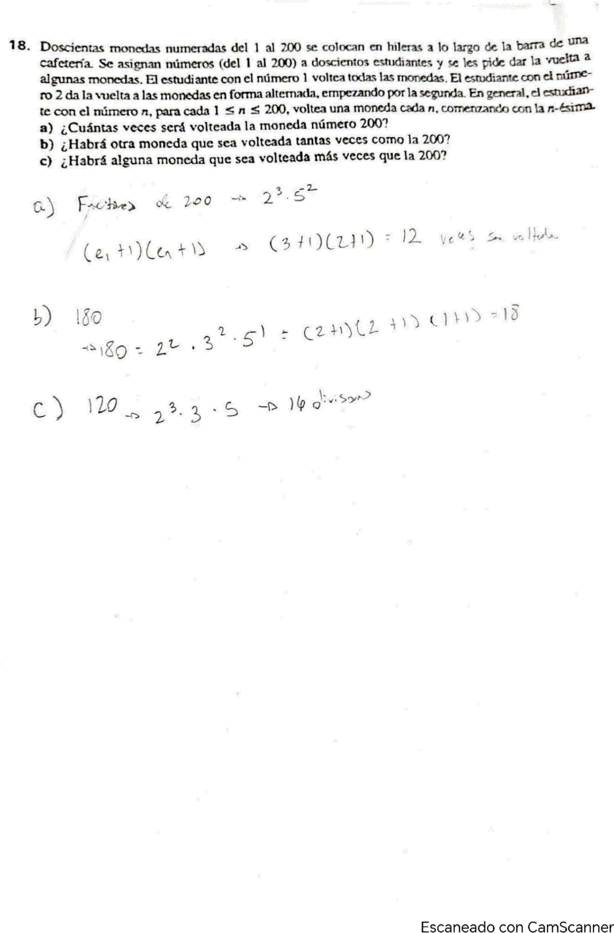 18. Doscientas monedas numeradas del 1 al 200 se colocan en hileras a lo largo de la barra de una
cafetería. Se asignan números (del 1 al 200) a doscientos estudiantes y se les pide dar la vuelta a
algunas monedas. El estudiante con el número 1 voltea todas las monedas. El estudiante con el núme-
ro 2 da la vuelta a las monedas en forma alternada, empezando por la segunda. En general, el estudian-
te con el número n, para cada 1 ≤ n ≤ 200, voltea una moneda cada n, comenzando con la n-ésima.
a) ¿Cuántas veces será volteada la moneda número 200?
b) ¿Habrá otra moneda que sea volteada tantas veces como la 200?
c) ¿Habrá alguna moneda que sea volteada más veces que la 200?
a) Factores de 200 → 2³·5²
(e₁+1)(eₙ+1) → (3+1)(2+1) = 12 veces
b) 180
→ 180 = 2² · 3² · 5¹ = (2+1)(2+1)(1+1) = 18
c) 120 → 2³·3·5 → 16 divisores
Escaneado con CamScanner